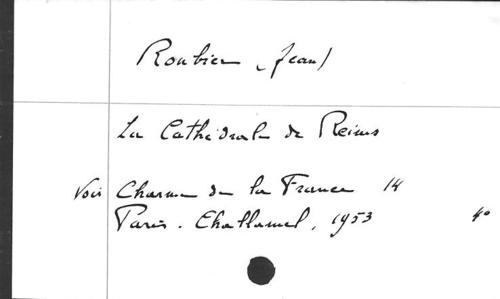 Roubier (Jean)
La Cathédrale de Reims
Voir Charme de la France 14
Paris. Challamel, 1953 4°